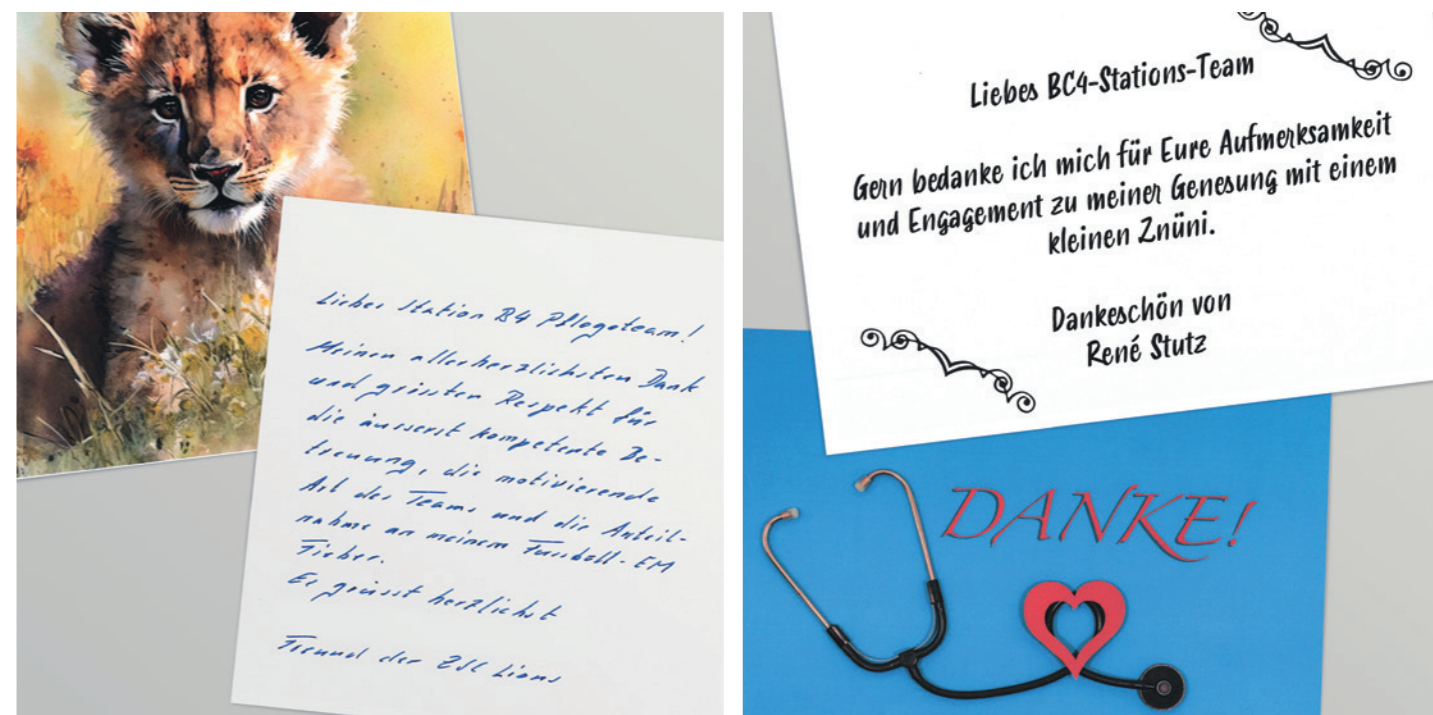 Liebes Station B4 Pflegeteam!
Meinen allerherzlichsten Dank
und grössten Respekt für
die äusserst kompetente Be-
treuung, die motivierende
Art des Teams und die Anteil-
nahme an meinem Fussball-EM
Fieber.
Es grüsst herzlichst
Freund der ZSC Lions
Liebes BC4-Stations-Team
Gern bedanke ich mich für Eure Aufmerksamkeit
und Engagement zu meiner Genesung mit einem
kleinen Znüni.
Dankeschön von
René Stutz
DANKE!